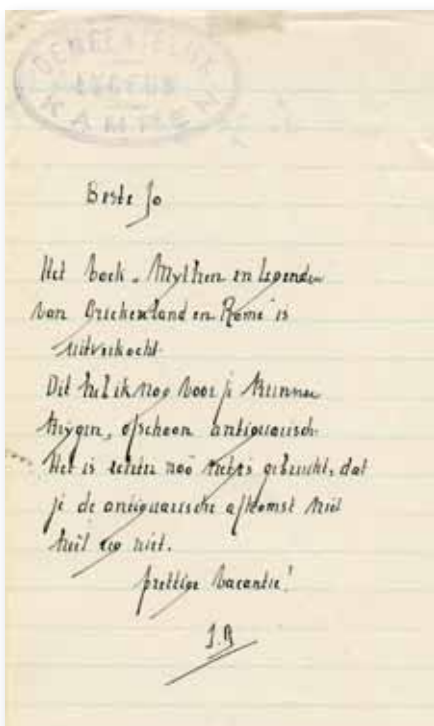 GEMEENTELIJK
LYCEUM
KAMPEN
Beste Jo
Het boek „Mythen en Legenden
van Griekenland en Rome" is
uitverkocht.
Dit heb ik nog voor je kunnen
krijgen, ofschoon antiquarisch.
Het is echter nog netjes gebruikt, dat
je de antiquarische afkomst niet
niet.
prettige vacantie!
J.B